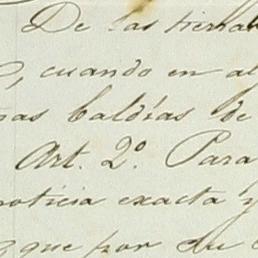 De las tierra
, cuando en al
ras baldías de
Art. 2º. Para
noticia exacta y
que por su